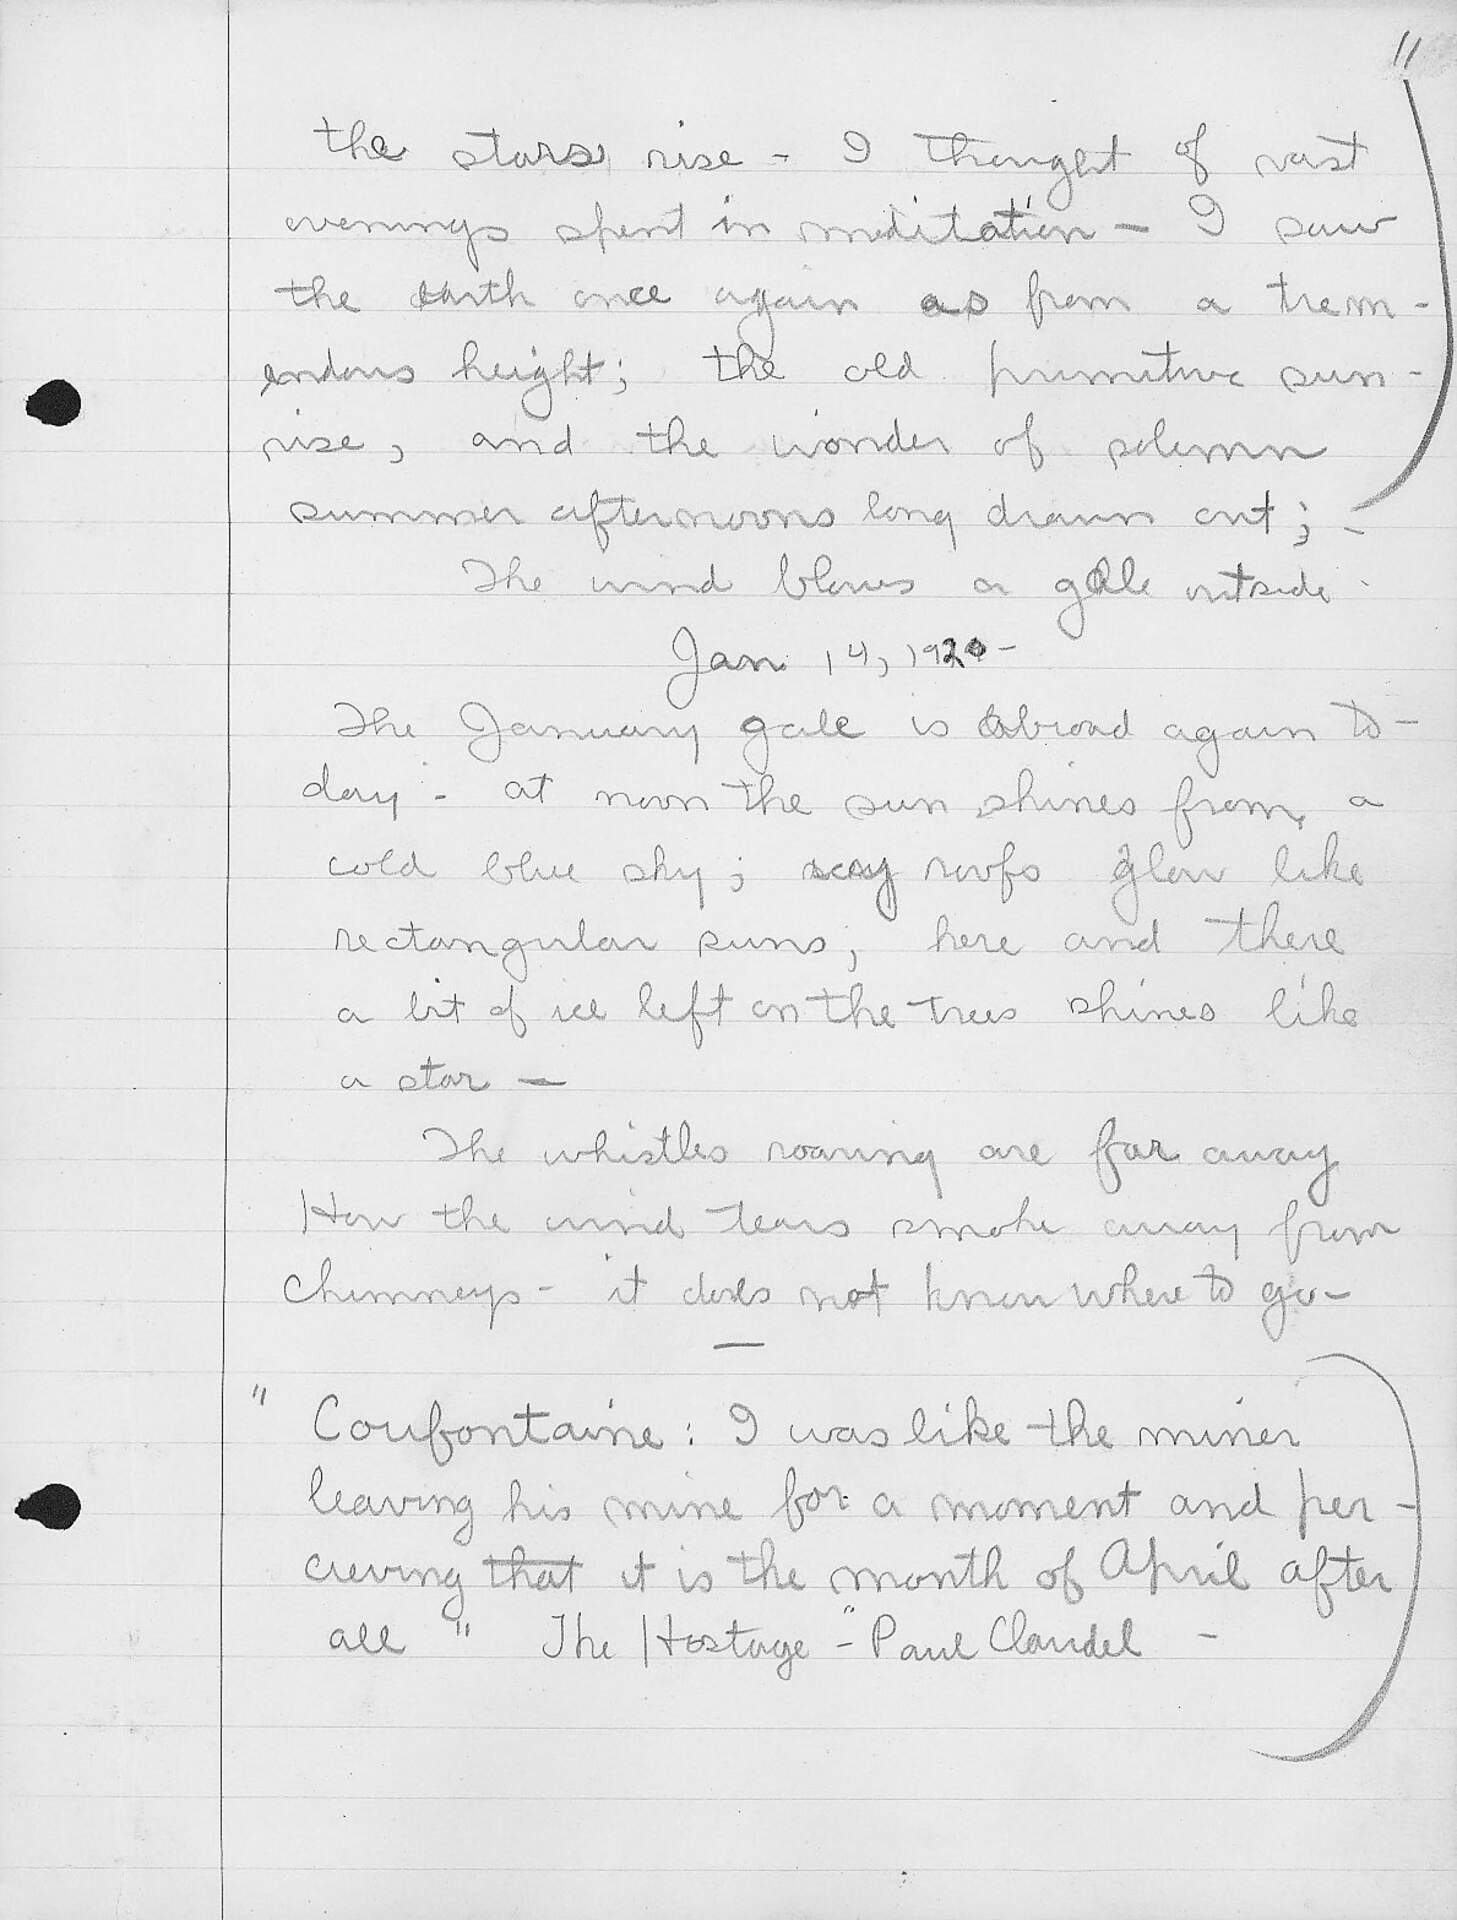 11
the stars rise - I thought of vast
evenings spent in meditation - I saw
the earth once again as from a trem-
endous height; the old primitive sun-
rise, and the wonder of solemn
summer afternoons long drawn out; -
The wind blows a gale outside
Jan 14, 1920 -
The January gale is abroad again to-
day - at noon the sun shines from a
cold blue sky; roofs glow like
rectangular suns; here and there
a bit of ice left on the trees shines like
a star -
The whistles roaring are far away
How the wind tears smoke away from
chimneys - it does not know where to go -
—
" Coufontaine: I was like the miner
leaving his mine for a moment and per-
cieving that it is the month of April after
all " The Hostage" - Paul Claudel -